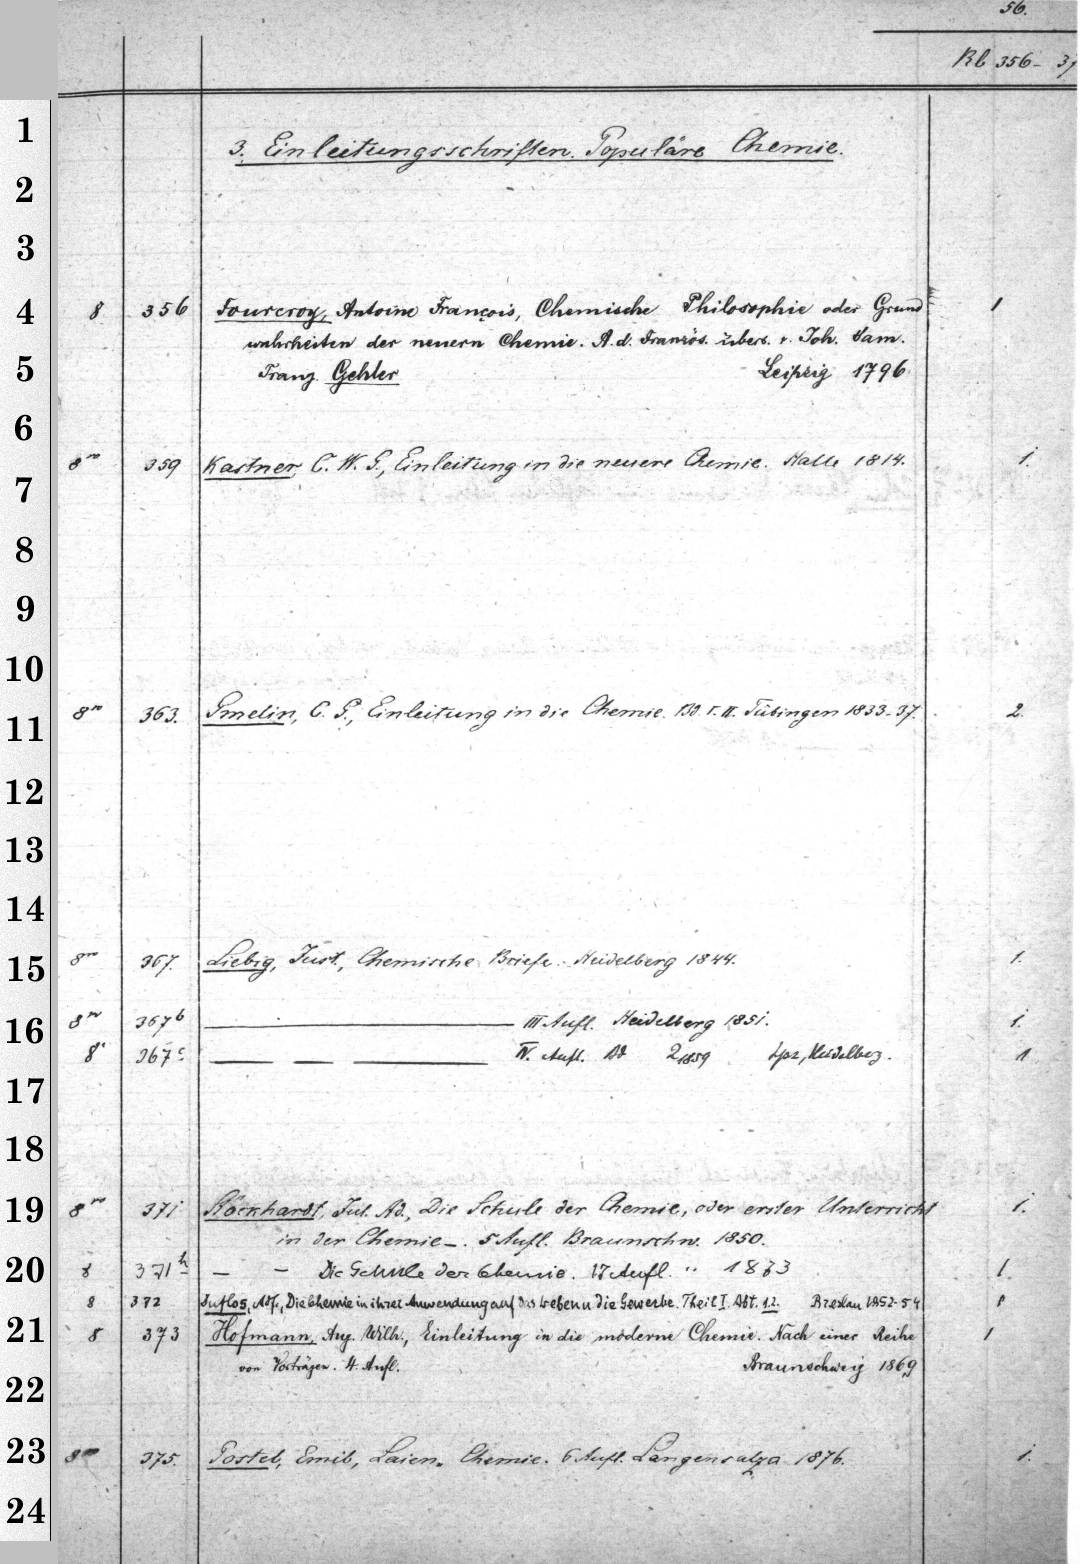 56.
Rb 356-37
1
3. Einleitungsschriften. Populäre Chemie.
2
3
4 8 356 Fourcroy, Antoine François, Chemische Philosophie oder Grund 1
wahrheiten der neuern Chemie. A. d. Französ. übers. v. Joh. Sam.
5 Franz Gehler Leipzig 1796
6
8vo 359 Kastner, C. W. G., Einleitung in die neuere Chemie. Halle 1814. 1.
7
8
9
10
11 8vo 363. Gmelin, C. G., Einleitung in die Chemie. Bd. I. II. Tübingen 1833-37. 2.
12
13
14
15 8vo 367. Liebig, Just., Chemische Briefe. Heidelberg 1844. 1.
16 8vo 367b III Aufl. Heidelberg 1851. 1.
8° 367c IV. Aufl. Bd 2 1859 Lpz, Heidelberg. 1
17
18
19 8vo 371 Stöckhardt, Jul. Ad., Die Schule der Chemie, oder erster Unterricht 1.
in der Chemie. 5 Aufl. Braunschw. 1850.
20 8 371h — — Die Schule der Chemie. 17 Aufl. " 1873 1
8 372 Duflos, Adf., Die Chemie in ihrer Anwendung auf das Leben u die Gewerbe. Theil I. Abt. 1.2. Breslau 1852-54
21 8 373 Hofmann, Aug. Wilh., Einleitung in die moderne Chemie. Nach einer Reihe 1
von Vorträgen. 4. Aufl. Braunschweig 1869
22
23 8vo 375. Postel, Emil, Laien-Chemie. 6 Aufl. Langensalza 1876. 1.
24